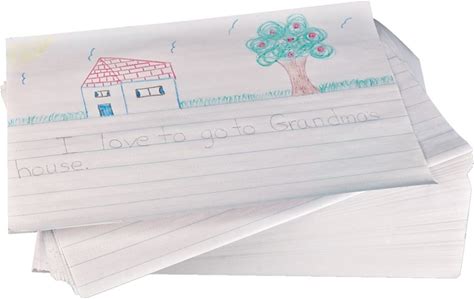 I love to go to Grandmas
house.